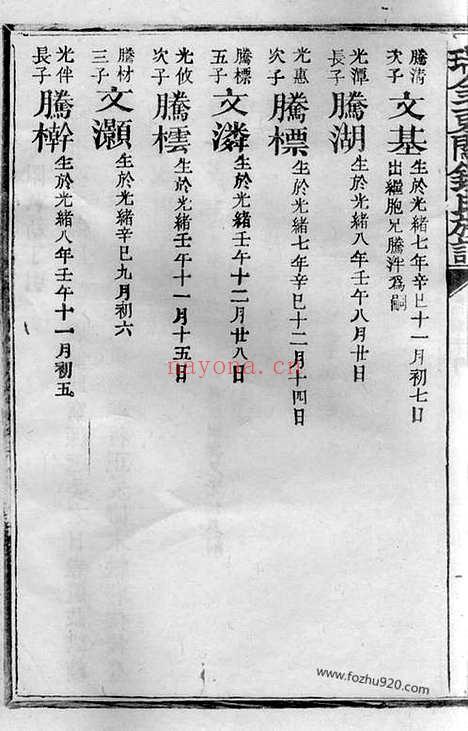 騰清次子 文基 生於光緒七年辛巳十一月初七日
出繼胞兄騰泮為嗣
光潭長子 騰湖 生於光緒八年壬午八月廿日
光惠次子 騰標 生於光緒七年辛巳十二月十四日
騰標五子 文潾 生於光緒壬午十二月廿八日
光攸次子 騰橒 生於光緒壬午十一月十五日
騰材三子 文灝 生於光緒辛巳九月初六
光伴長子 騰檊 生於光緒八年壬午十一月初五。
nayona.cn
www.fozhu920.com